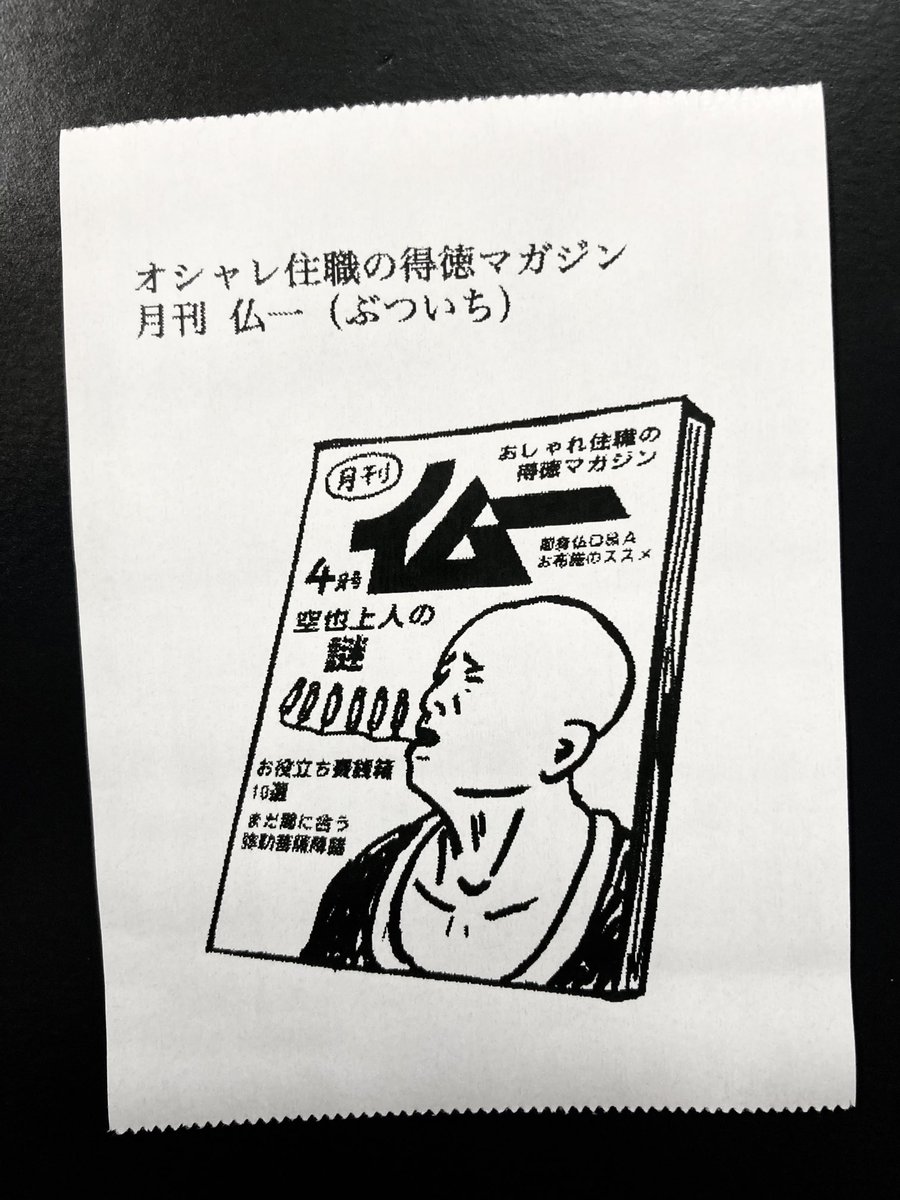 オシャレ住職の得徳マガジン
月刊 仏一（ぶついち）
月刊
仏一
おしゃれ住職の
得徳マガジン
即身仏Q&A
お布施のススメ
4月号
空也上人の
謎
お役立ち賽銭箱
10選
まだ間に合う
弥勒菩薩降臨